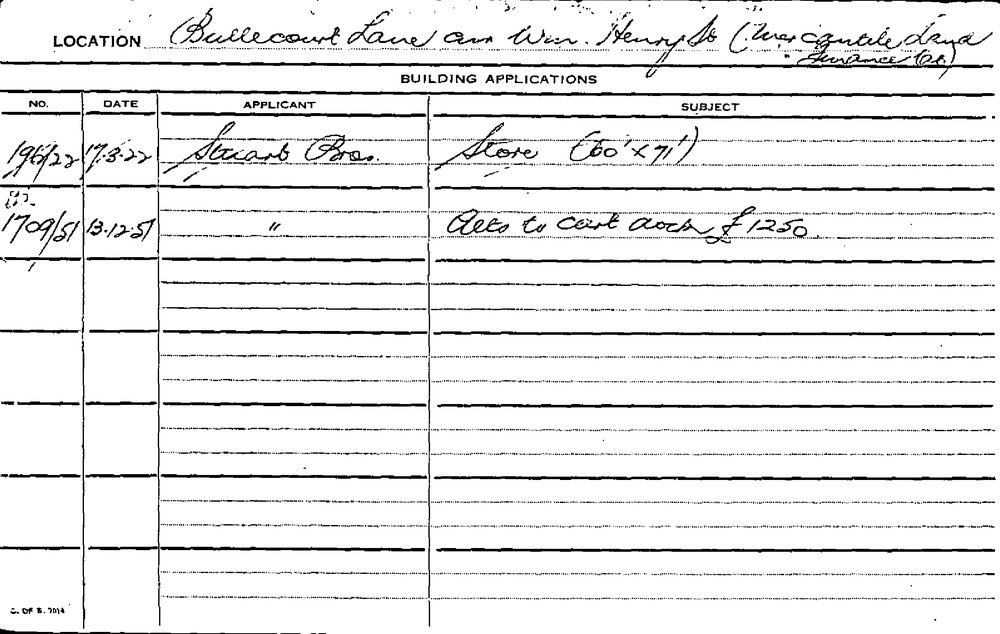 LOCATION Bullecourt Lane cnr Wm. Henry St (Mercantile Land
Finance Co)
BUILDING APPLICATIONS
NO. DATE APPLICANT SUBJECT
196/22 17.3.22 Stuart Bros. Store (60' x 71')
1709/51 13.12.51 " Alts to cart dock £1250.